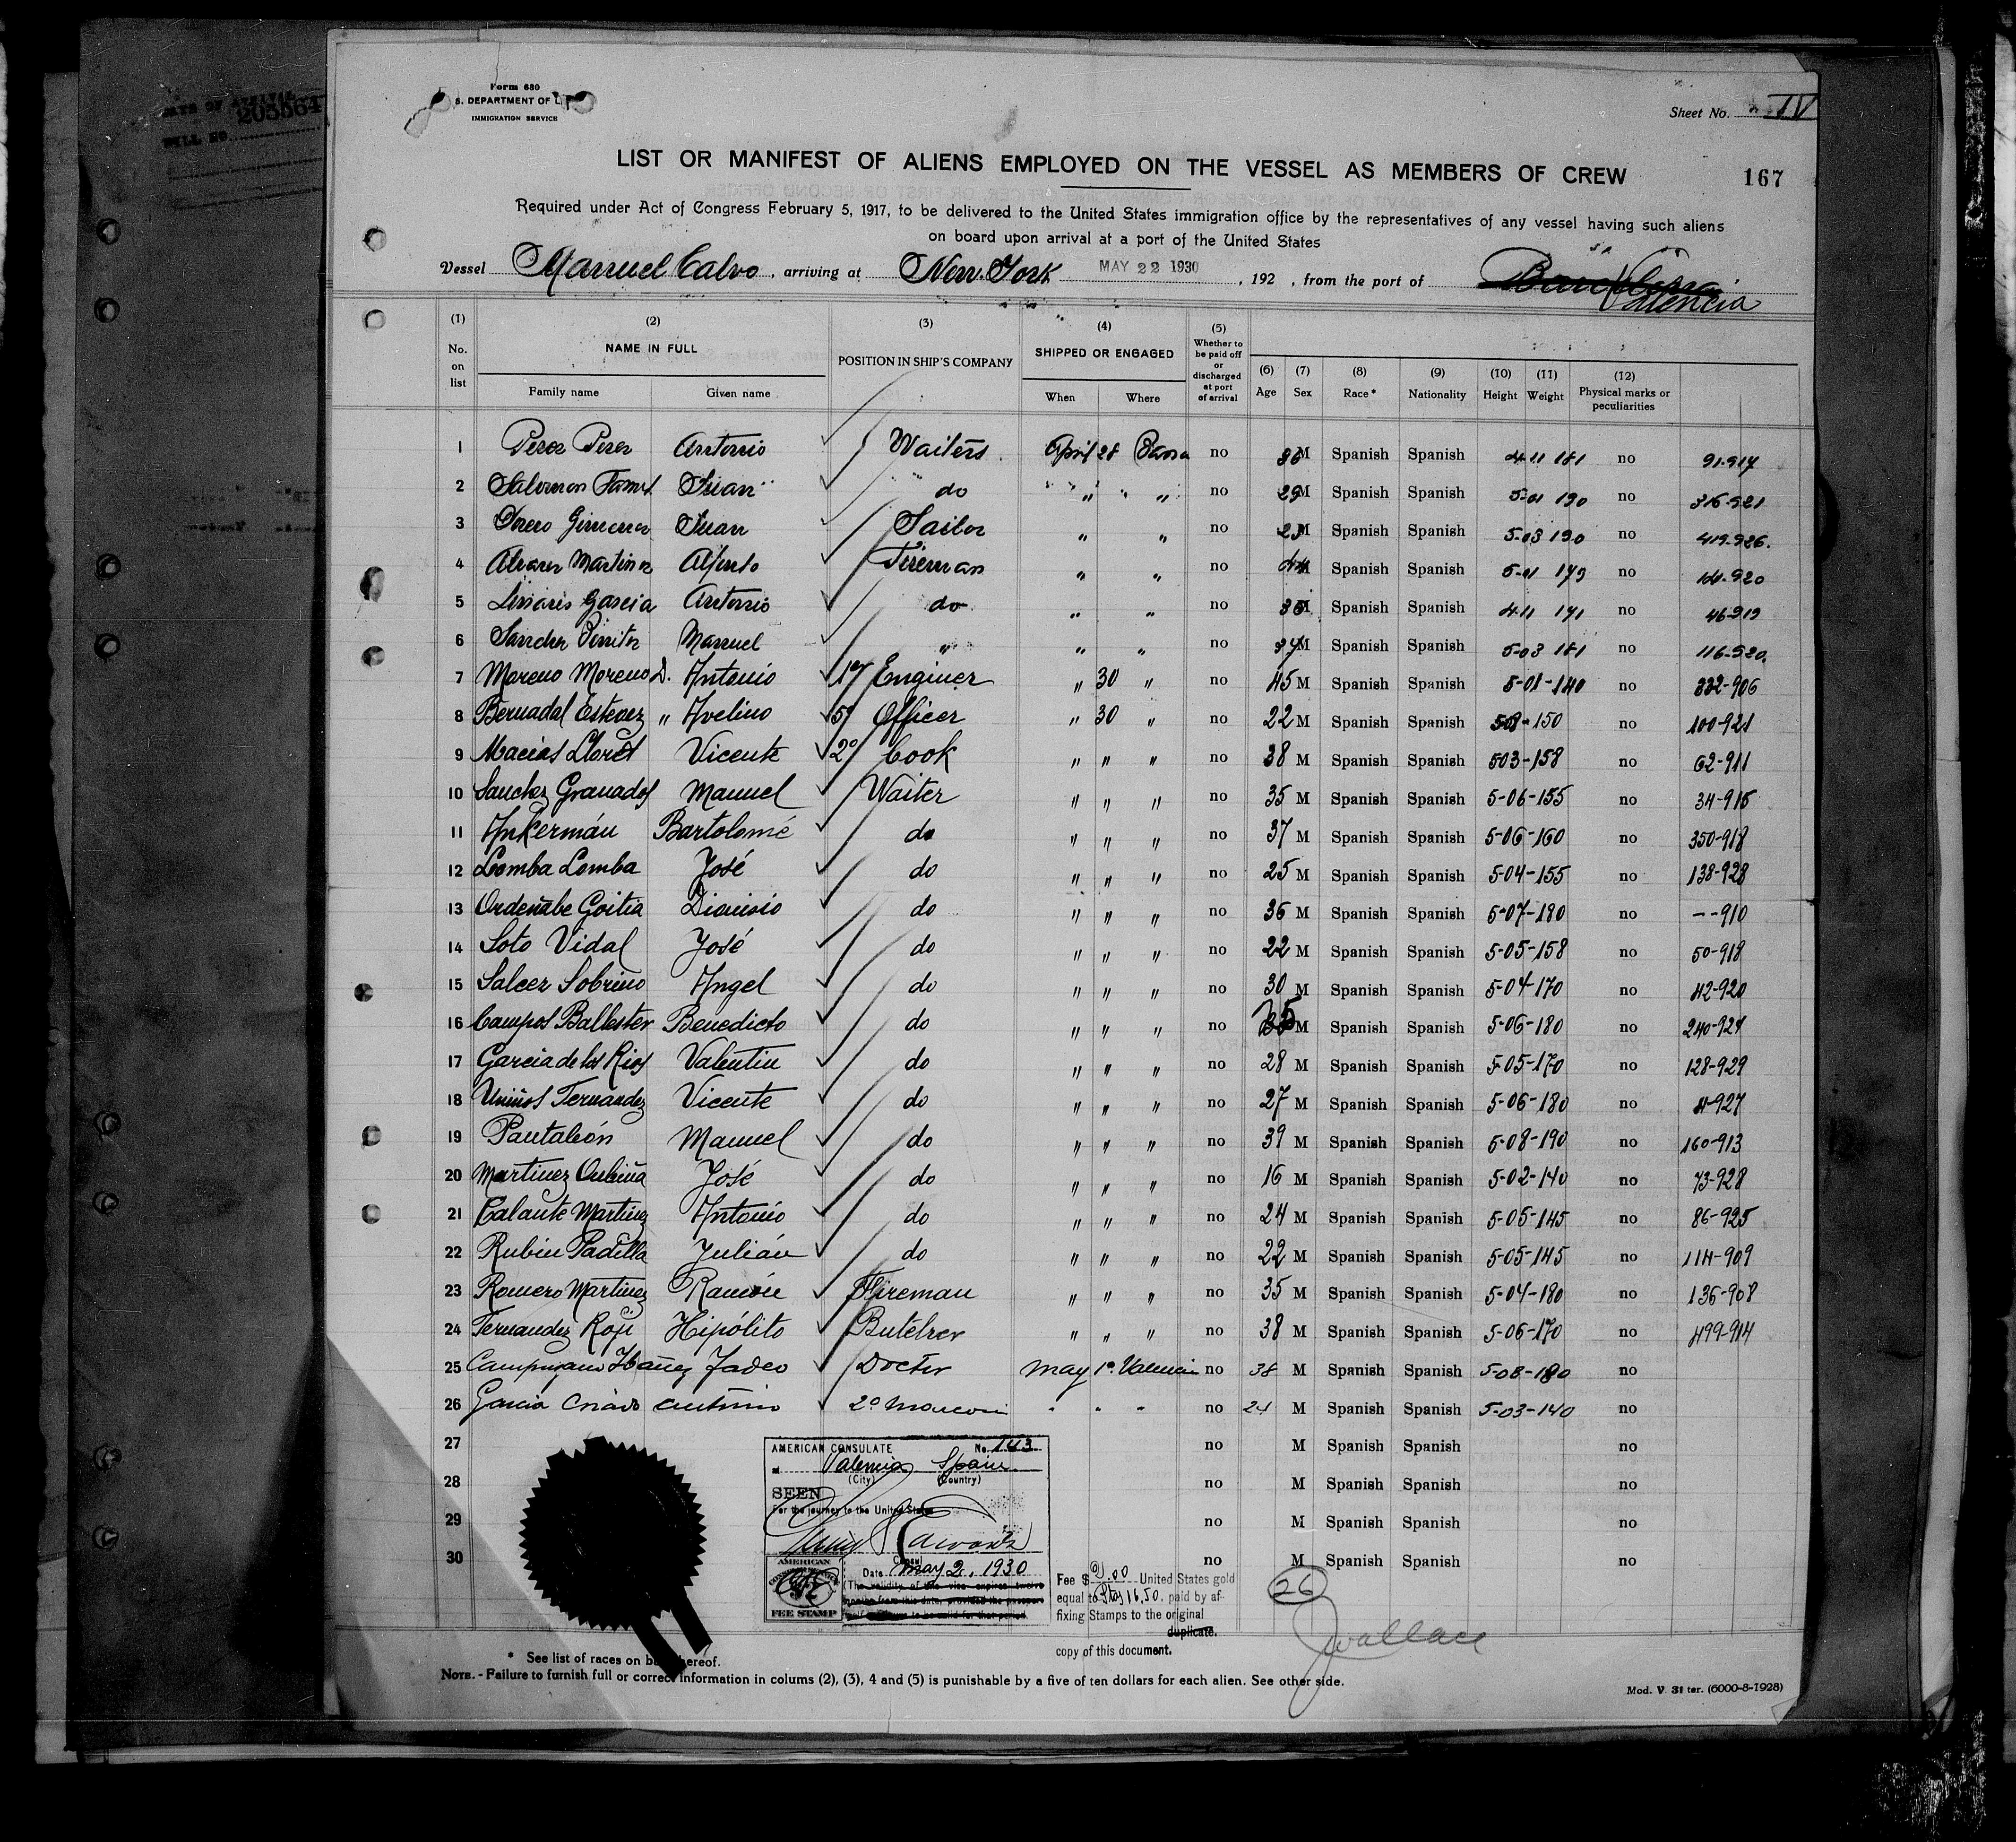 205564
Form 680
S. DEPARTMENT OF
IMMIGRATION SERVICE
Sheet No. IV
LIST OR MANIFEST OF ALIENS EMPLOYED ON THE VESSEL AS MEMBERS OF CREW
167
Required under Act of Congress February 5, 1917, to be delivered to the United States immigration office by the representatives of any vessel having such aliens
on board upon arrival at a port of the United States
Vessel Manuel Calvo, arriving at New-York MAY 22 1930, 192 , from the port of Barcelona Valencia
(1) (2) (3) (4) (5)
No. on list NAME IN FULL POSITION IN SHIP'S COMPANY SHIPPED OR ENGAGED Whether to be paid off or discharged at port of arrival
(6) (7) (8) (9) (10) (11) (12)
Age Sex Race* Nationality Height Weight Physical marks or peculiarities
Family name Given name When Where
1 Perez Perez Antonio Waiters April 28 no M Spanish Spanish 4-11 181 no 91-917
2 Juan do " " no 29 M Spanish Spanish 5-01 190 no 316-921
3 Juan Sailor " " no M Spanish Spanish 5-03 190 no
4 Alvarez Martinez Alfredo Fireman " " no Spanish Spanish 5-01 179 no
5 Linares Garcia Antonio do " " no Spanish Spanish 4-11 171 no 46-919
6 Sanchez Manuel " " " no M Spanish Spanish 5-03 181 no 116-920
7 Moreno Moreno D. Antonio 1er Enginer " 30 " no 45 M Spanish Spanish 5-01-140 no 332-906
8 Bernadal Estevez " Avelino 5º Officer " 30 " no 22 M Spanish Spanish 508-150 no 100-921
9 Macias Lloret Vicente 2º Cook " " " no 38 M Spanish Spanish 503-158 no 62-911
10 Sanchez Granados Manuel Waiter " " " no 35 M Spanish Spanish 5-06-155 no 34-915
11 Ankermán Bartolomé do " " " no 37 M Spanish Spanish 5-06-160 no 350-918
12 Lomba Lomba José do " " " no 25 M Spanish Spanish 5-04-155 no 138-928
13 Ordeñabe Goitia Dionisio do " " " no 36 M Spanish Spanish 5-07-180 no --910
14 Soto Vidal José do " " " no 22 M Spanish Spanish 5-05-158 no 50-918
15 Salcez Sobrino Angel do " " " no 30 M Spanish Spanish 5-04-170 no 42-920
16 Campos Ballester Benedicto do " " " no M Spanish Spanish 5-06-180 no
17 Garcia de los Rios Valentin do " " " no 28 M Spanish Spanish 5-05-170 no 128-929
18 Fernandez Vicente do " " " no 27 M Spanish Spanish 5-06-180 no 4-927
19 Pantaleón Manuel do " " " no 39 M Spanish Spanish 5-08-190 no 160-913
20 Martinez Oubiña José do " " " no 16 M Spanish Spanish 5-02-140 no 73-928
21 Martinez Antonio do " " " no 24 M Spanish Spanish 5-05-145 no 86-925
22 Rubin Padilla Julián do " " " no 22 M Spanish Spanish 5-05-145 no 114-909
23 Romero Martinez Ramón Fireman " " " no 35 M Spanish Spanish 5-04-180 no 136-908
24 Fernandez Roji Hipólito Butcher " " " no 38 M Spanish Spanish 5-06-170 no 499-914
25 Campuzano Ibañez Tadeo Doctor May 1º Valencia no 38 M Spanish Spanish 5-08-180 no
26 Garcia Criado Antonio 2º Marconi " " " no M Spanish Spanish 5-03-140 no
27 no M Spanish Spanish no
28 no M Spanish Spanish no
29 no M Spanish Spanish no
30 no M Spanish Spanish no
AMERICAN CONSULATE No. 143
at Valencia Spain
(City) (Country)
SEEN
For the journey to the United States
Consul
Date May 2, 1930
(The validity of this visa expires twelve
months from this date, provided the passport
itself continues to be valid for that period.
AMERICAN
FEE STAMP
Fee $ .00 United States gold
equal to Ptas 16,50, paid by af-
fixing Stamps to the original
duplicate.
copy of this document.
26
Wallace
* See list of races on back hereof.
NOTE. - Failure to furnish full or correct information in colums (2), (3), 4 and (5) is punishable by a five of ten dollars for each alien. See other side.
Mod. V 31 ter. (6000-8-1928)